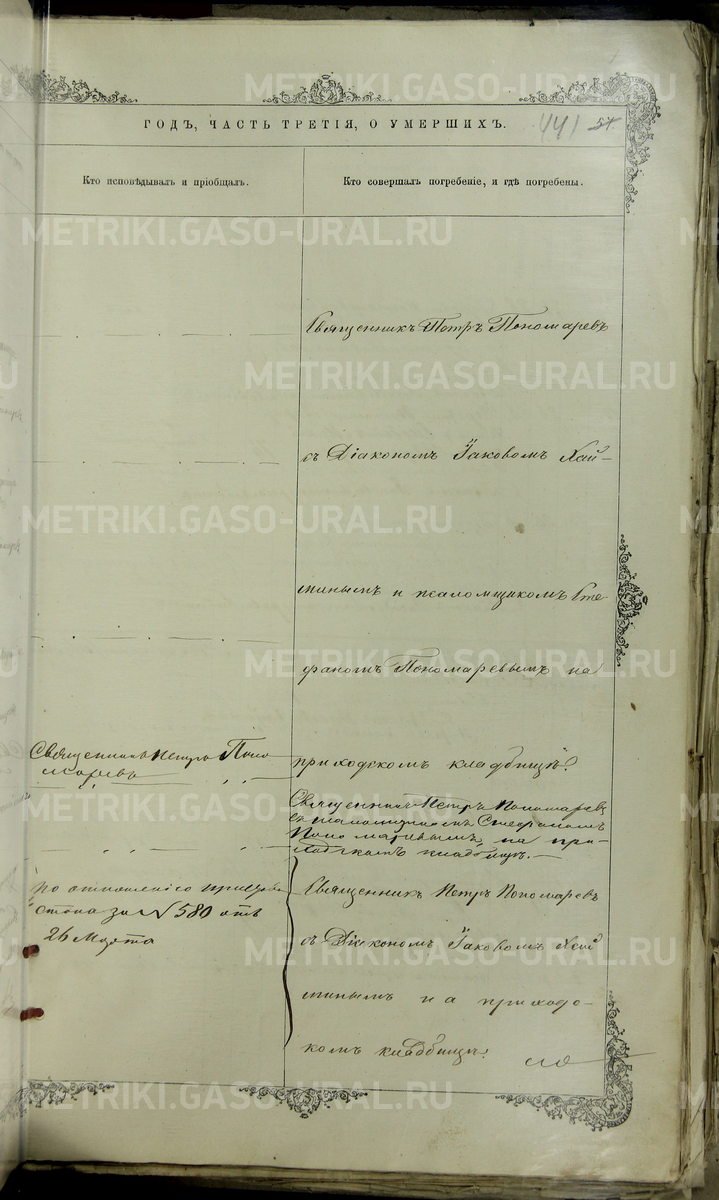 METRIKI.GASO-URAL.RU
ГОДЪ, ЧАСТЬ ТРЕТІЯ, О УМЕРШИХЪ.
441 54
Кто исповѣдывалъ и пріобщалъ.
Кто совершалъ погребеніе, и гдѣ погребены.
Священникъ Петръ Пономаревъ
съ Діакономъ Іаковомъ Хай-
минымъ и псаломщикомъ Сте-
фаномъ Пономаревымъ на
приходскомъ кладбищѣ.
Священникъ Петръ Поно-
маревъ
Священникъ Петръ Пономаревъ
съ псаломщикомъ Стефаномъ
Пономаревымъ, на при-
ходскомъ кладбищѣ.
по отношенію
стова за № 580 отъ
26 Марта
Священникъ Петръ Пономаревъ
съ Діакономъ Іаковомъ Хай
минымъ на приходс-
комъ кладбищѣ.